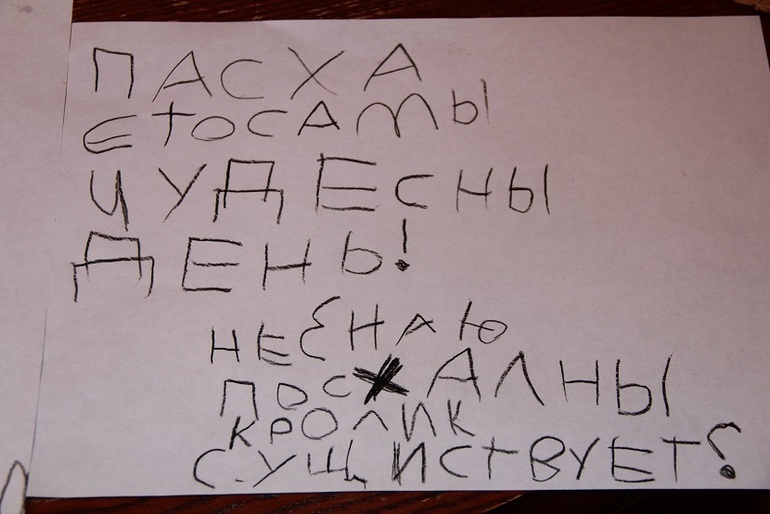 ПАСХА
ЄТОСАМЫ
ЧУДЕСНЫ
ДЕНЬ!
НЕЗНАЮ
ПОСХАЛНЫ
КРОЛИК
СУЩИСТВУЕТ?